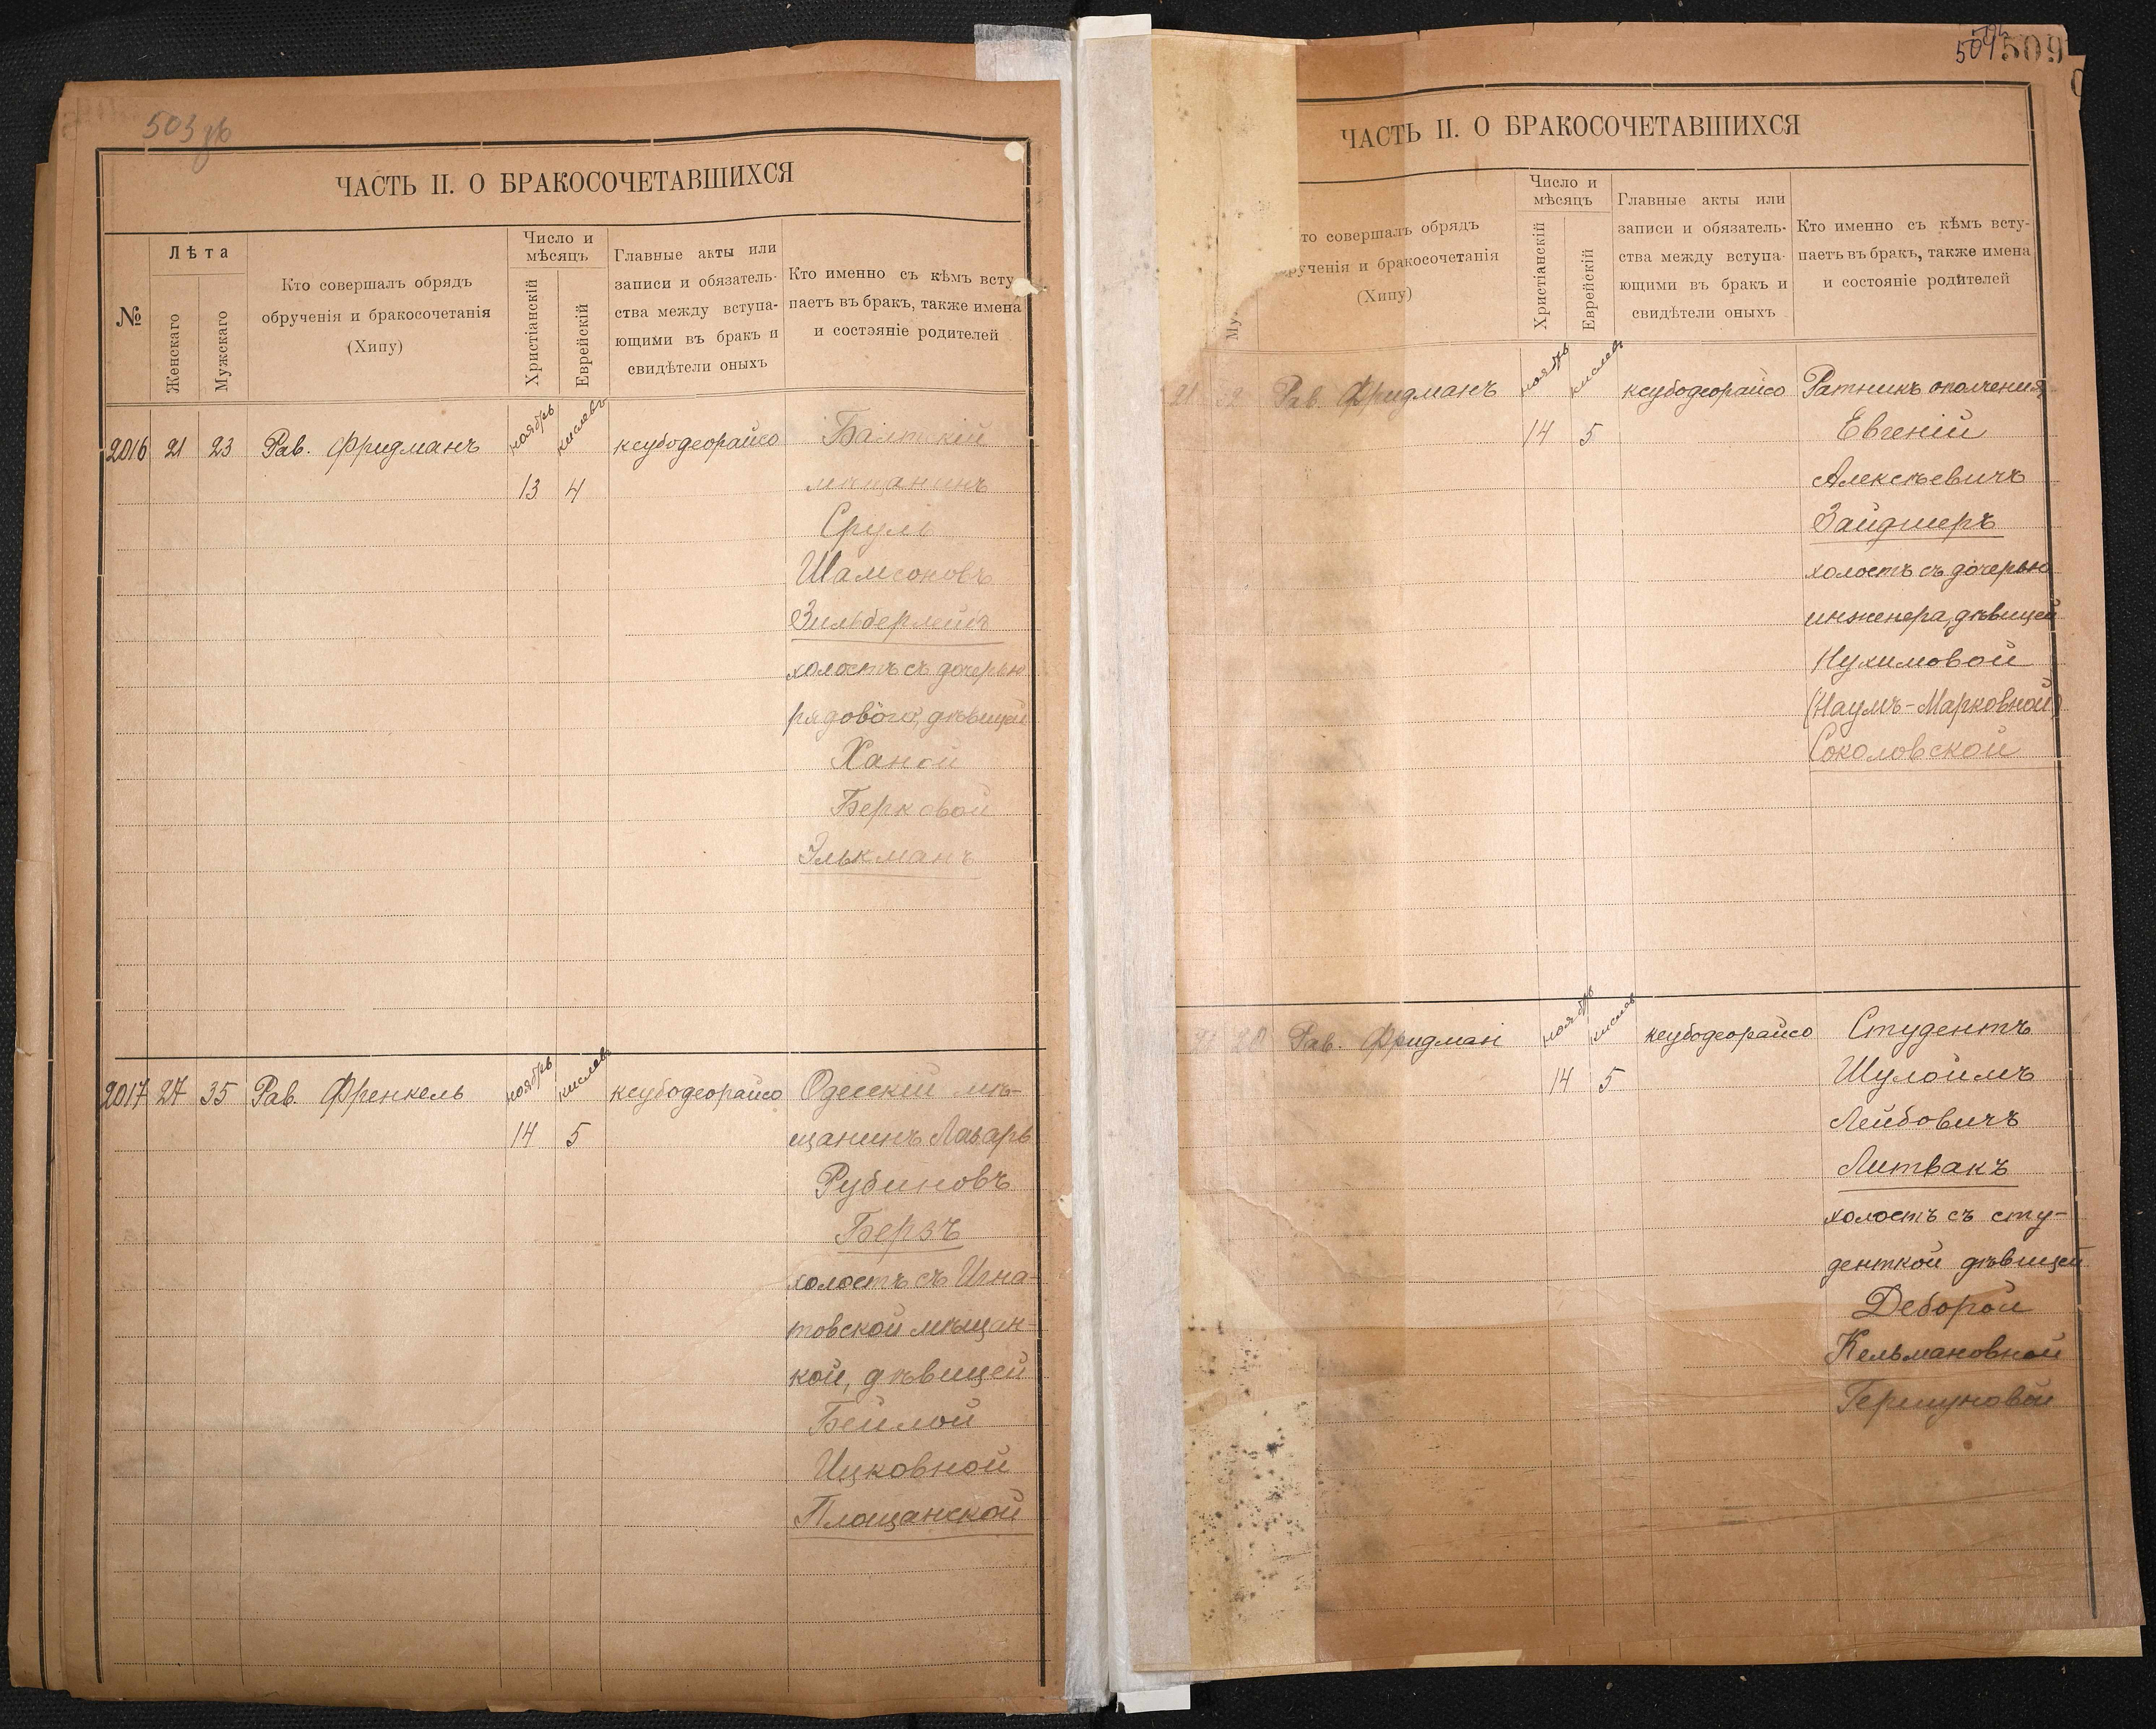 503 зв
ЧАСТЬ II. О БРАКОСОЧЕТАВШИХСЯ
№
Лѣта
Женскаго
Мужскаго
Кто совершалъ обрядъ
обрученія и бракосочетанія
(Хипу)
Число и
мѣсяцъ
Христіанскій
Еврейскій
Главные акты или
записи и обязатель-
ства между вступа-
ющими въ бракъ и
свидѣтели оныхъ
Кто именно съ кѣмъ всту-
паетъ въ бракъ, также имена
и состояніе родителей
2016 21 23 Рав. Фридманъ ноябрь кислевъ ксубодеорайсо Балтскій
13 4 мѣщанинъ
Сруль
Шамсоновъ
Зильберлейбъ
холостъ съ дочерью
рядового, дѣвицей
Ханой
Берковой
Элькманъ
2017 27 35 Рав. Френкель ноябрь кислевъ ксубодеорайсо Одесскій мѣ-
14 5 щанинъ Лазарь
Рубиновъ
Берзъ
холостъ съ Игна-
товской мѣщан-
кой, дѣвицей
Бейлой
Ицковной
Площанской
504 509
ЧАСТЬ II. О БРАКОСОЧЕТАВШИХСЯ
Му
то совершалъ обрядъ
рученія и бракосочетанія
(Хипу)
Число и
мѣсяцъ
Христіанскій
Еврейскій
Главные акты или
записи и обязатель-
ства между вступа-
ющими въ бракъ и
свидѣтели оныхъ
Кто именно съ кѣмъ всту-
паетъ въ бракъ, также имена
и состояніе родителей
21 Рав. Фридманъ ноябрь кислевъ ксубодеорайсо Ратникъ ополченія
14 5 Евгеній
Алексѣевичъ
Зайдшеръ
холостъ съ дочерью
инженера, дѣвицей
Нухимовой
(Наумъ-Марковной)
Соколовской
21 20 Рав. Фридман ноябрь кислев ксубодеорайсо Студентъ
14 5 Шулоимъ
Лейбовичъ
Литвакъ
холостъ съ сту-
денткой дѣвицей
Деборой
Кельмановной
Гершуновой